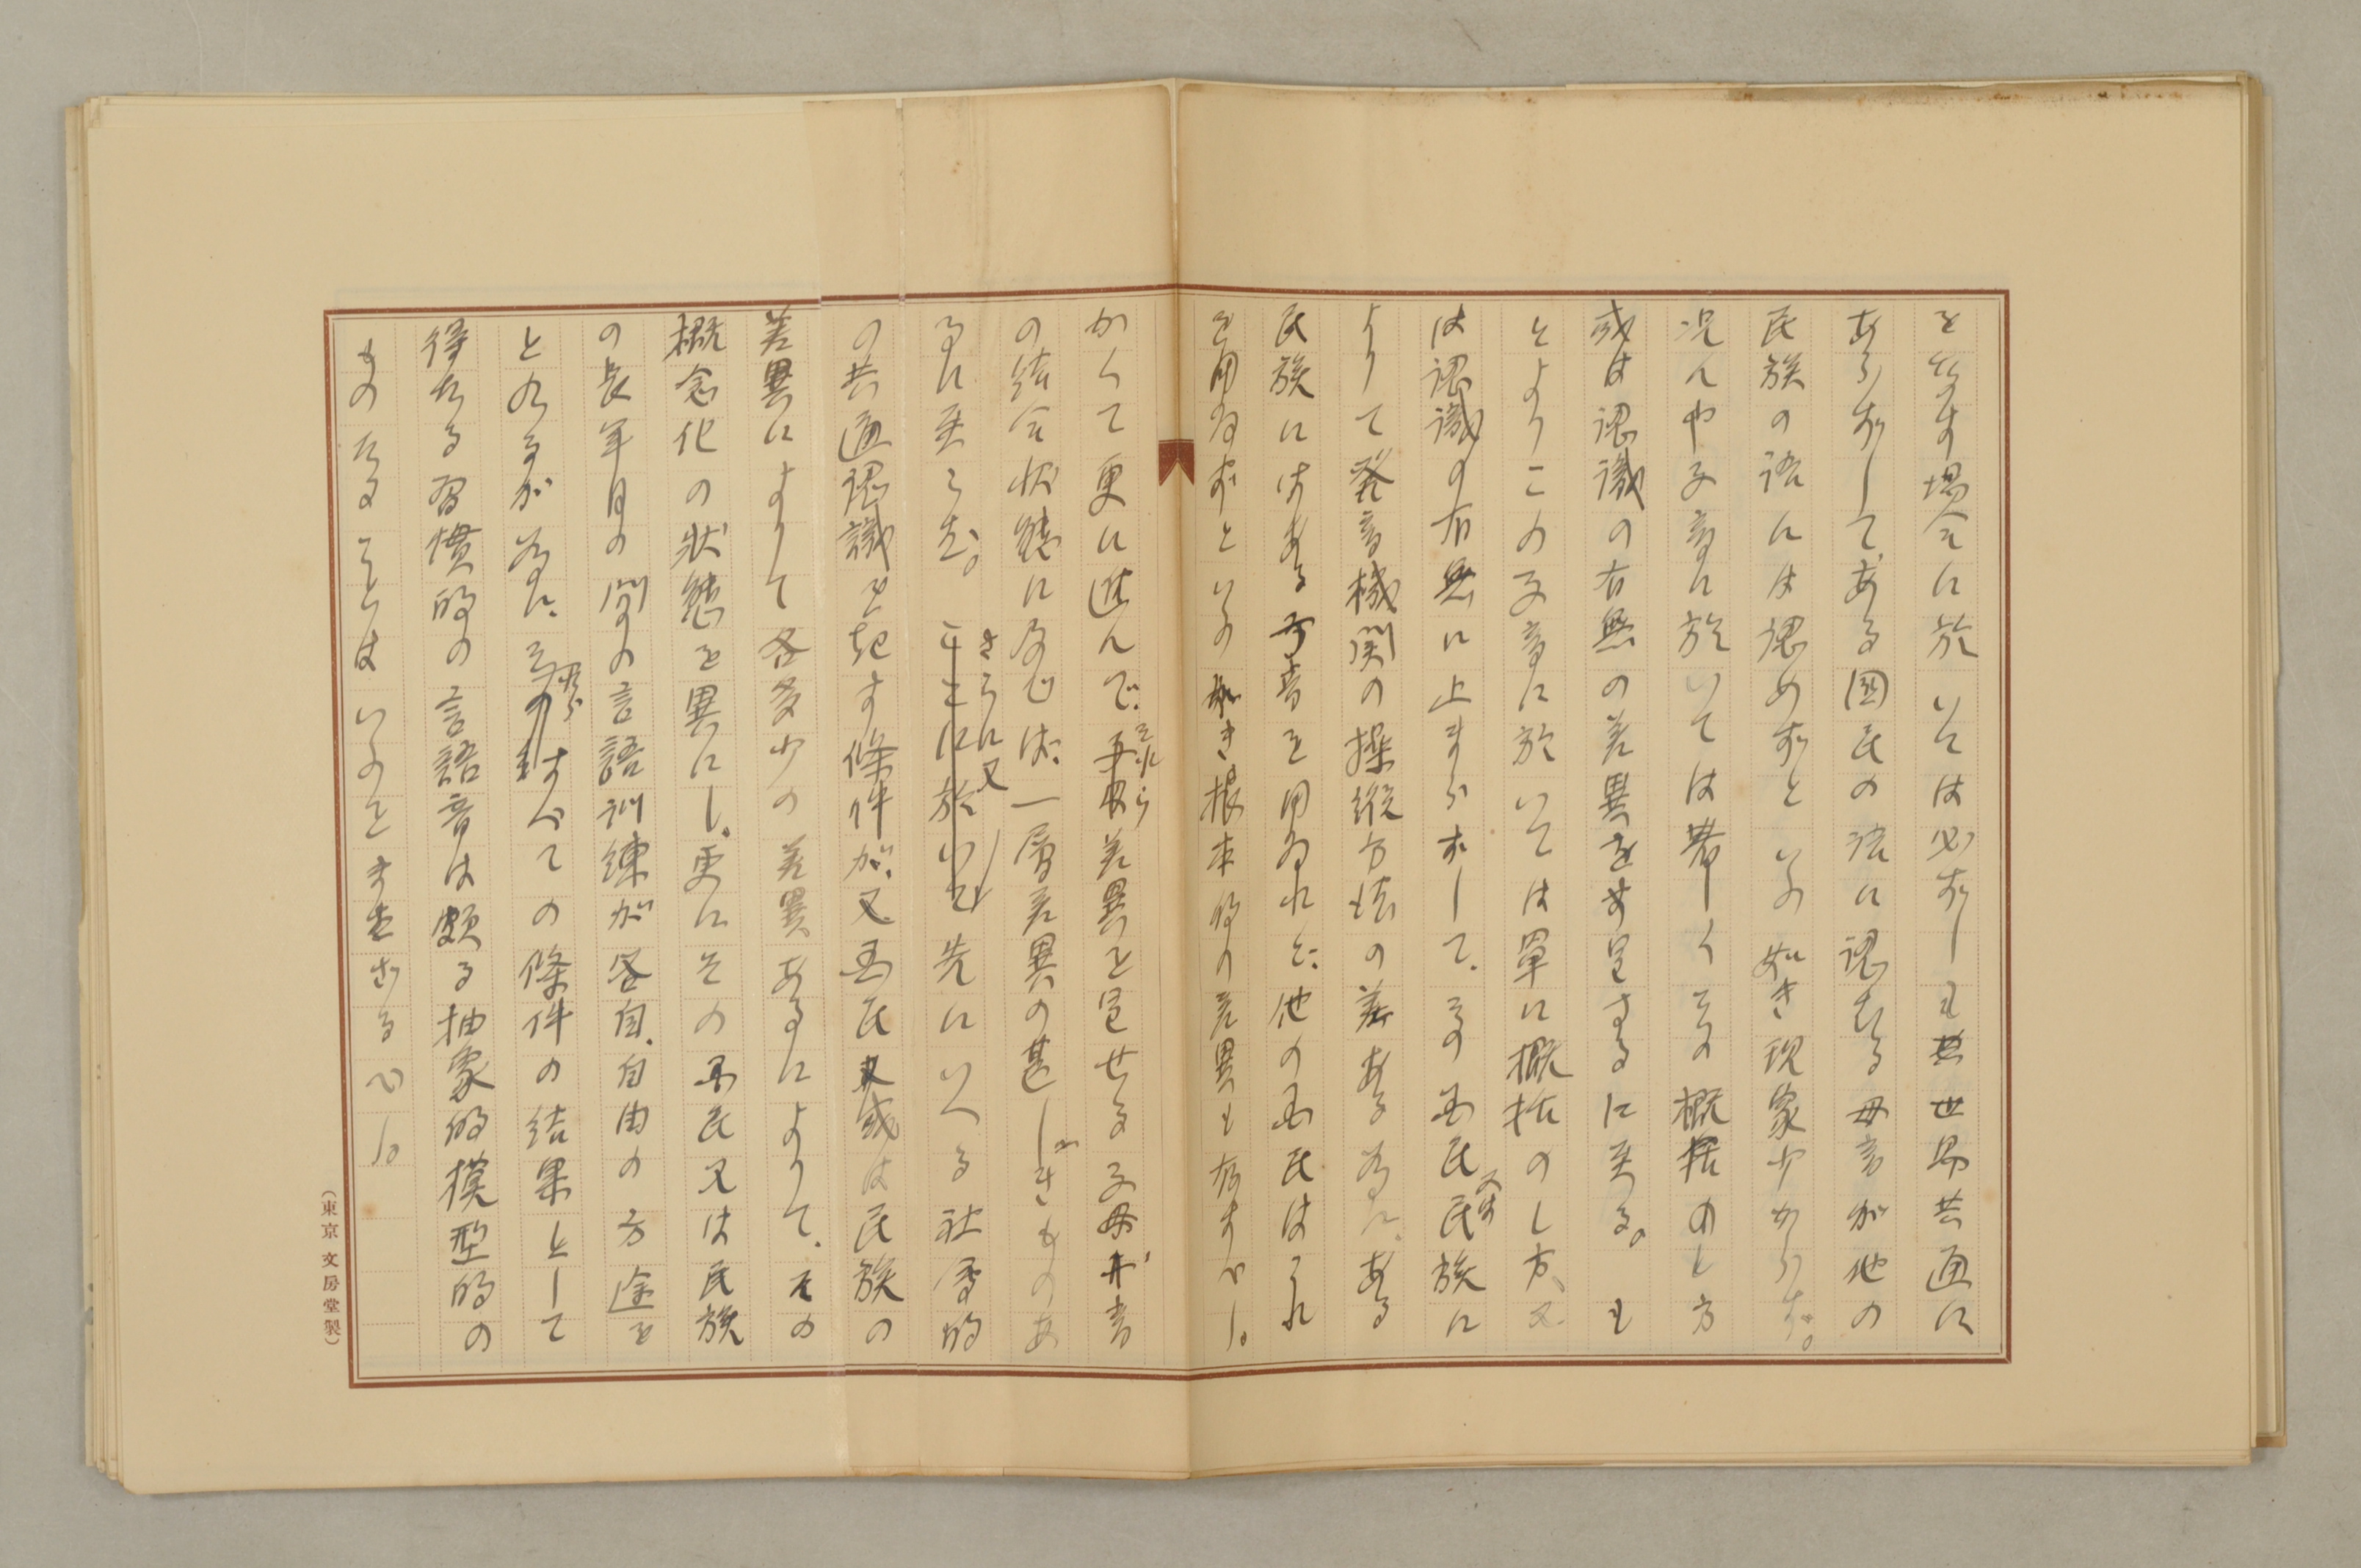 を なす場合に於いては必ずしも世界共通に
あらずして、ある国民の語に認むる母音が他の
民族の語には認めずといふ如き現象少からず。
況んや子音に於いては著しくその概括のし方
或は認識の有無の差異を呈するに至る。も
とよりこの子音に於いては単に概括のし方、又
は認識の有無に止まらずして、その国民又は民族に
よりて発音機関の操縦方法の差ある為に、ある
民族にはある子音を用ゐれど、他の国民はこれ
を用ゐずといふ如き根本的の差異も存すべし。
かくて更に進んで、それら差異を呈せる子母音
の結合状態に及べば、一層差異の甚しきものあ
るに至らむ。さらに又先にいへる社会的
の共通認識を起す條件が、又国民或は民族の
差異によりて各多少の差異あるによりて、その
概念化の状態を異にし、更にその国民又は民族
の長年月の間の言語訓練が各自、自由の方途を
とれるが為に、それらすべての條件の結果として
得たる習慣的の言語音は頗る抽象的模型的の
ものたることはいふをまたざるべし。
(東京 文房堂製)